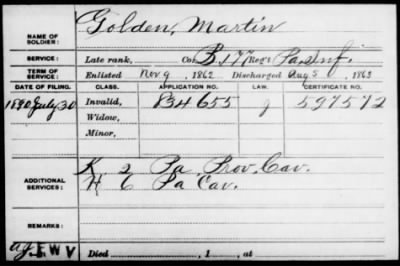 NAME OF SOLDIER: Golden, Martin
SERVICE: Late rank, Co. B, 177 Reg't Pa Inf.
TERM OF SERVICE: Enlisted Nov 9, 1862 Discharged Aug 5, 1863
DATE OF FILING. CLASS. APPLICATION NO. LAW. CERTIFICATE NO.
1890 July 30 Invalid, 834655 J 597572
Widow,
Minor,
ADDITIONAL SERVICES: K. 2 Pa Prov. Cav.
H 6 Pa Cav.
REMARKS:
E W V Died , 1 , at